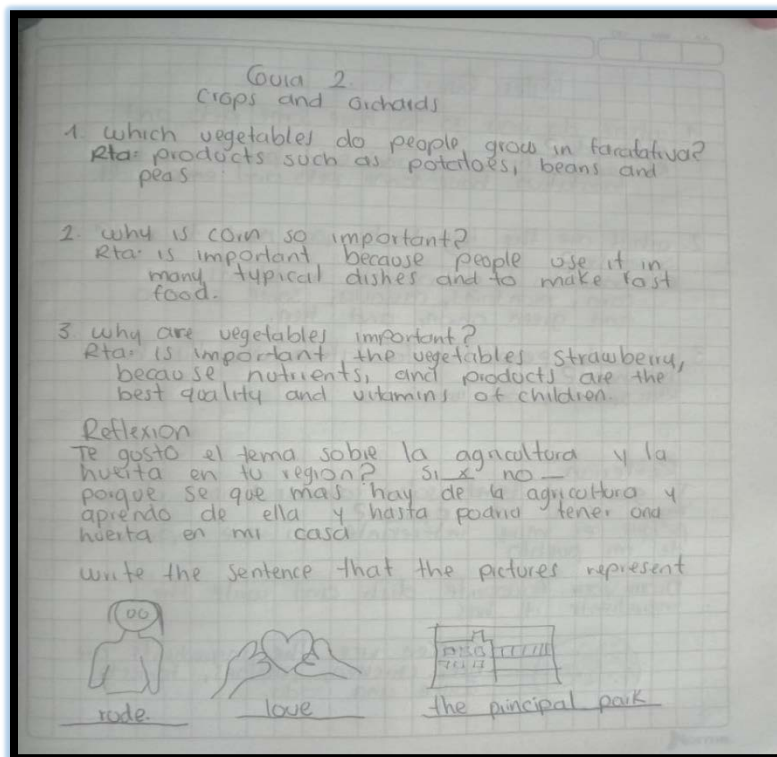 Guia 2.
Crops and orchards
1. which vegetables do people grow in facatativa?
Rta: products such as potatoes, beans and
peas
2. why is corn so important?
Rta: is important because people use it in
many typical dishes and to make fast
food.
3. why are vegetables important?
Rta: is important the vegetables strawberry,
because nutrients, and products are the
best quality and vitamins of children.
Reflexion
Te gusto el tema sobre la agricultura y la
huerta en tu region? Si x no _
porque se que mas hay de la agricultura y
aprendo de ella y hasta podria tener una
huerta en mi casa
write the sentence that the pictures represent
rode. love the principal park